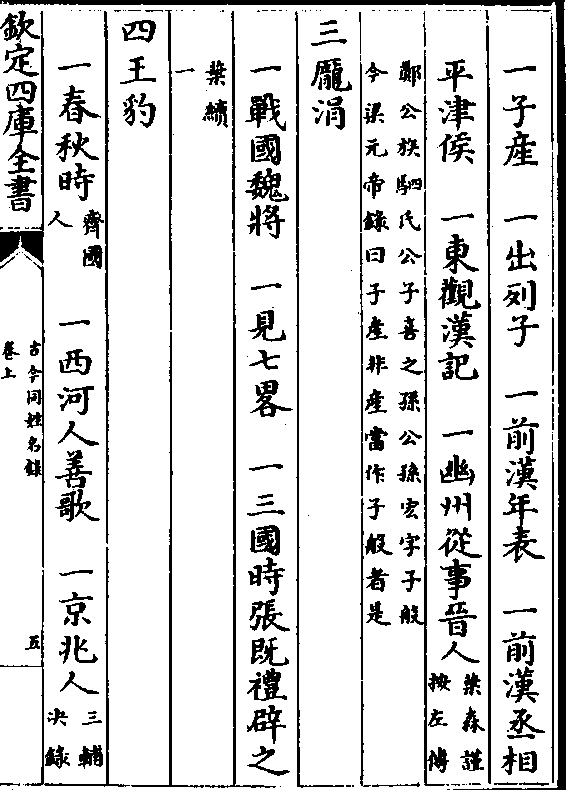 一子産　一出列子　一前漢年表　一前漢丞相
平津侯　一東觀漢記　一幽州從事晉人葉森謹按左傳
鄭公族駟氏公子喜之孫公孫宏字子般
今梁元帝錄曰子產非產當作子般者是
三龐涓
一戰國魏將　一見七畧　一三國時張既禮辟之
葉續
一
四王豹
一春秋時齊國人　一西河人善歌　一京兆人三輔決錄
欽定四庫全書
古今同姓名錄
卷上
五